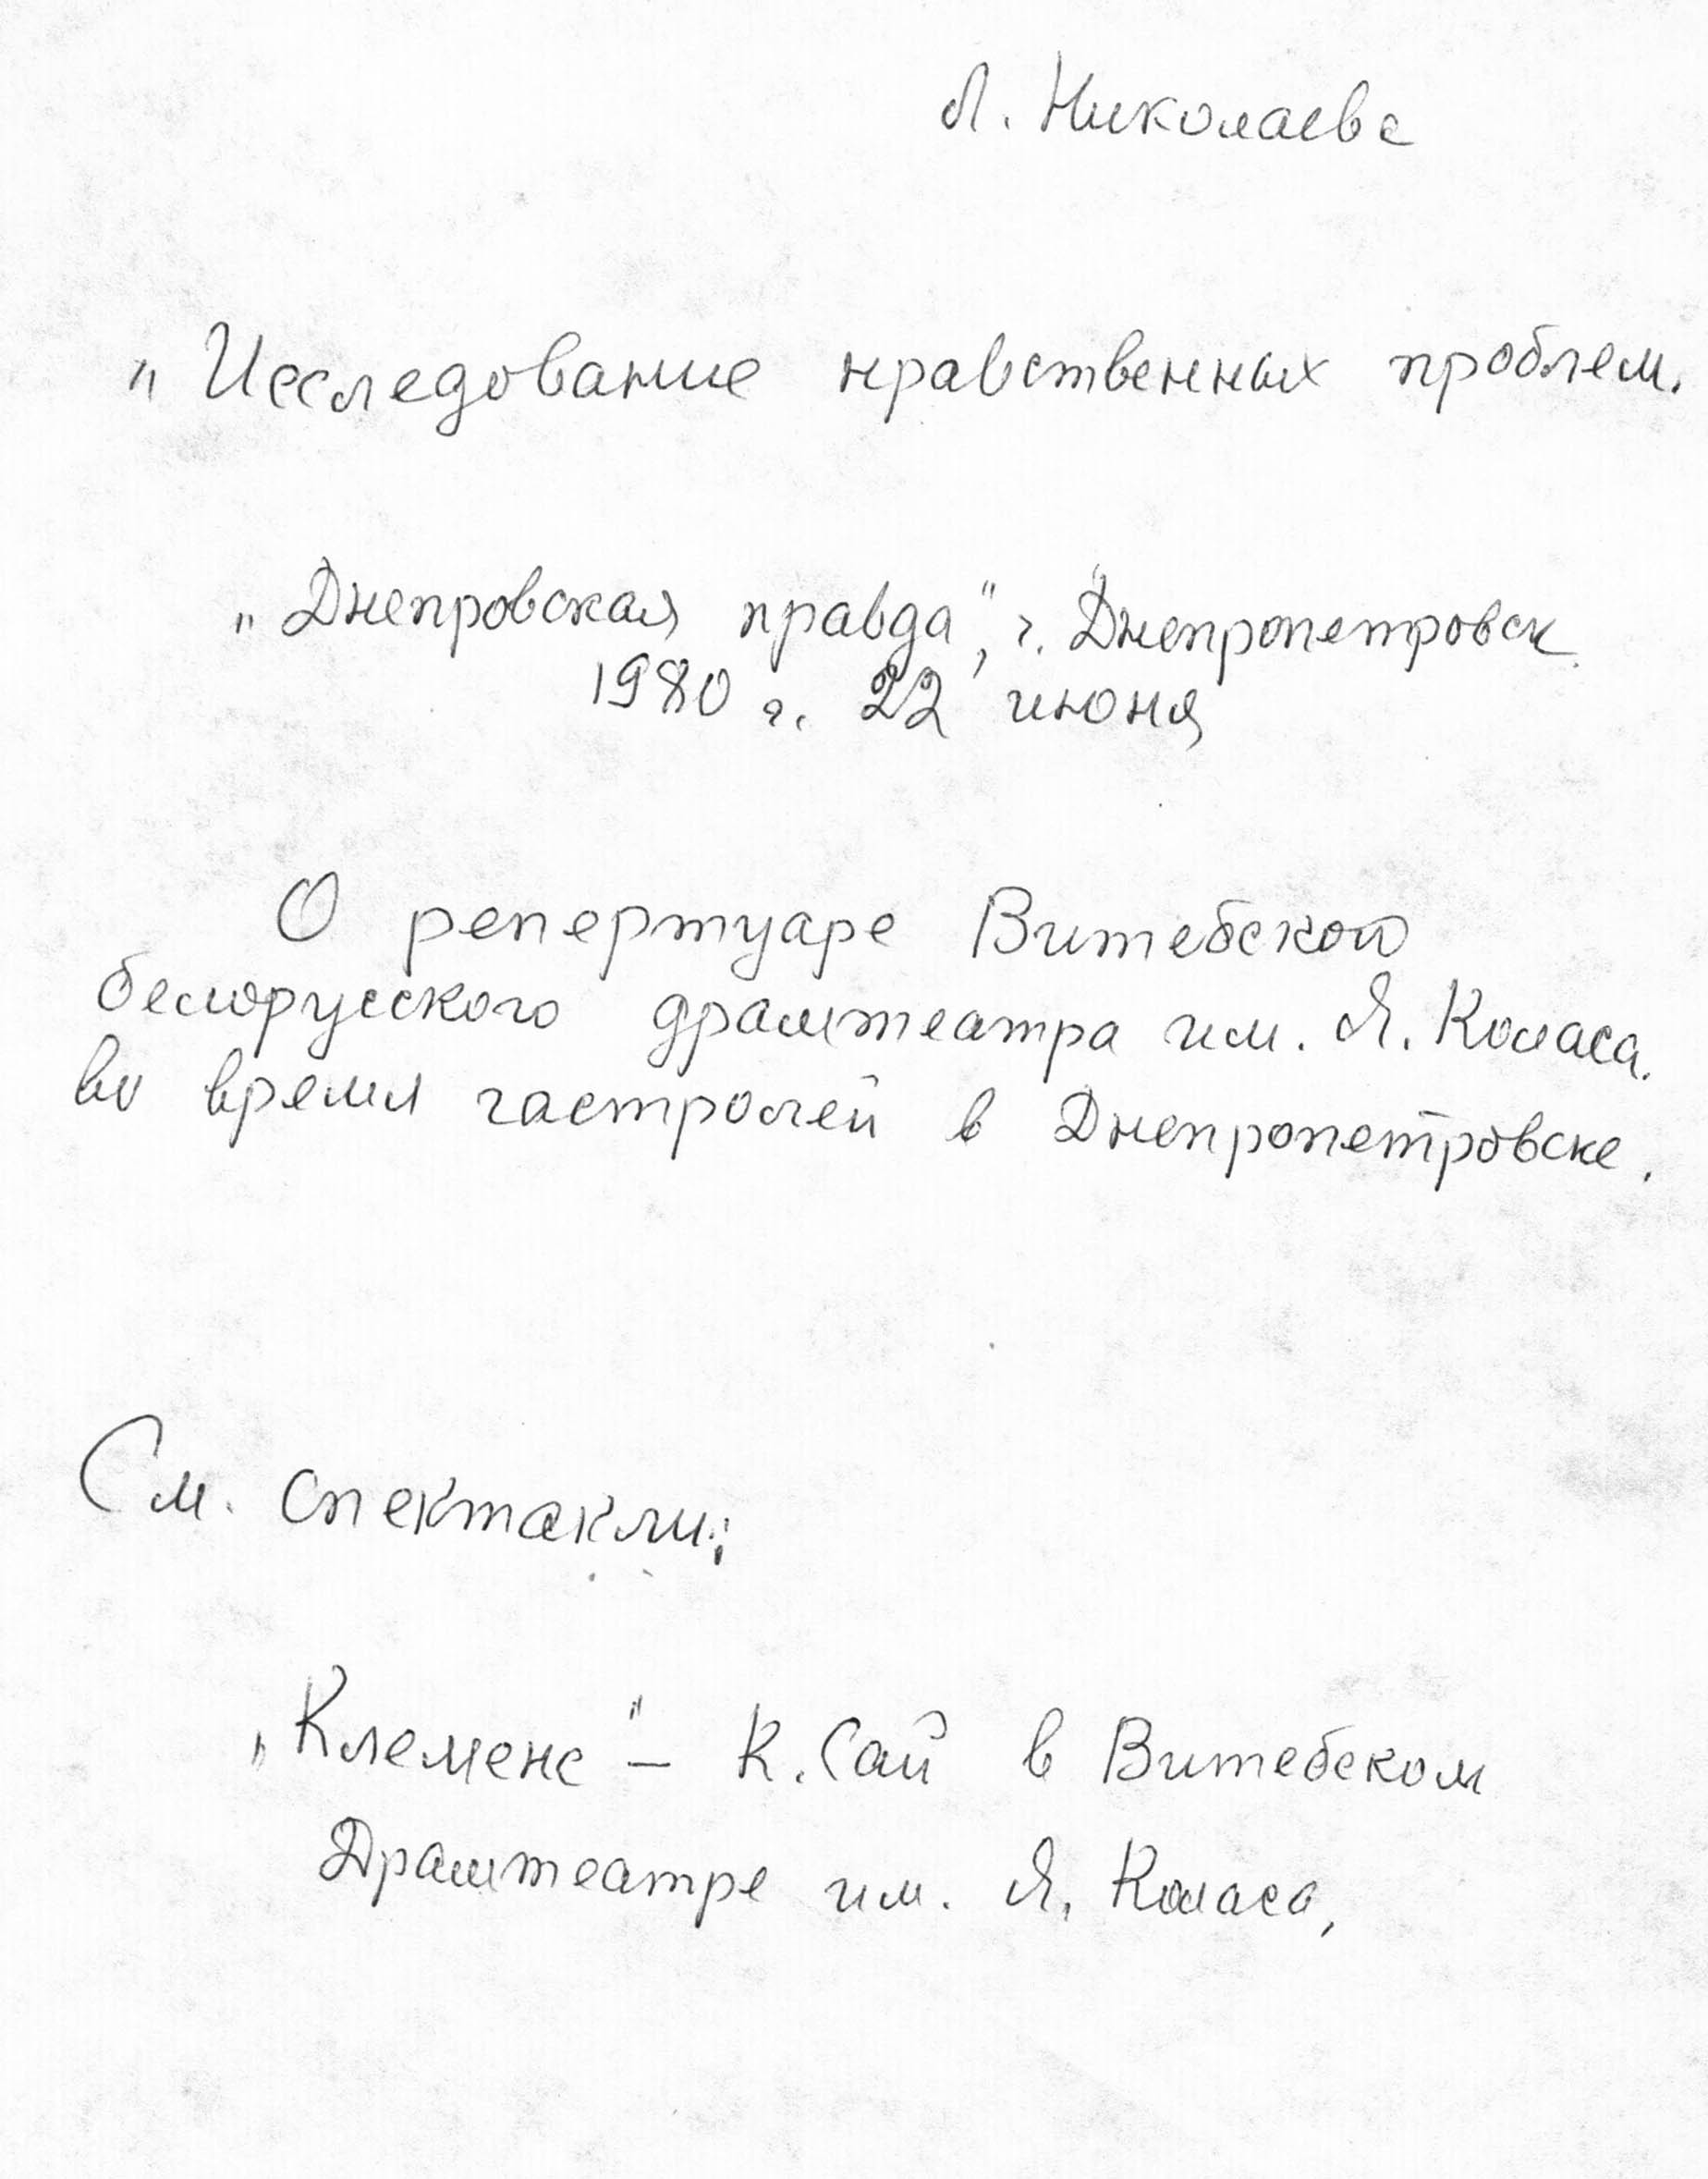 Л. Николаева
„Исследование нравственных проблем.
„Днепровская правда", г. Днепропетровск
1980 г. 22 июня
О репертуаре Витебской
белорусского драмтеатра им. Я. Коласа.
во время гастролей в Днепропетровске.
См. спектакли:
„Клеменс" – К. Сай в Витебском
Драмтеатре им. Я. Коласа,